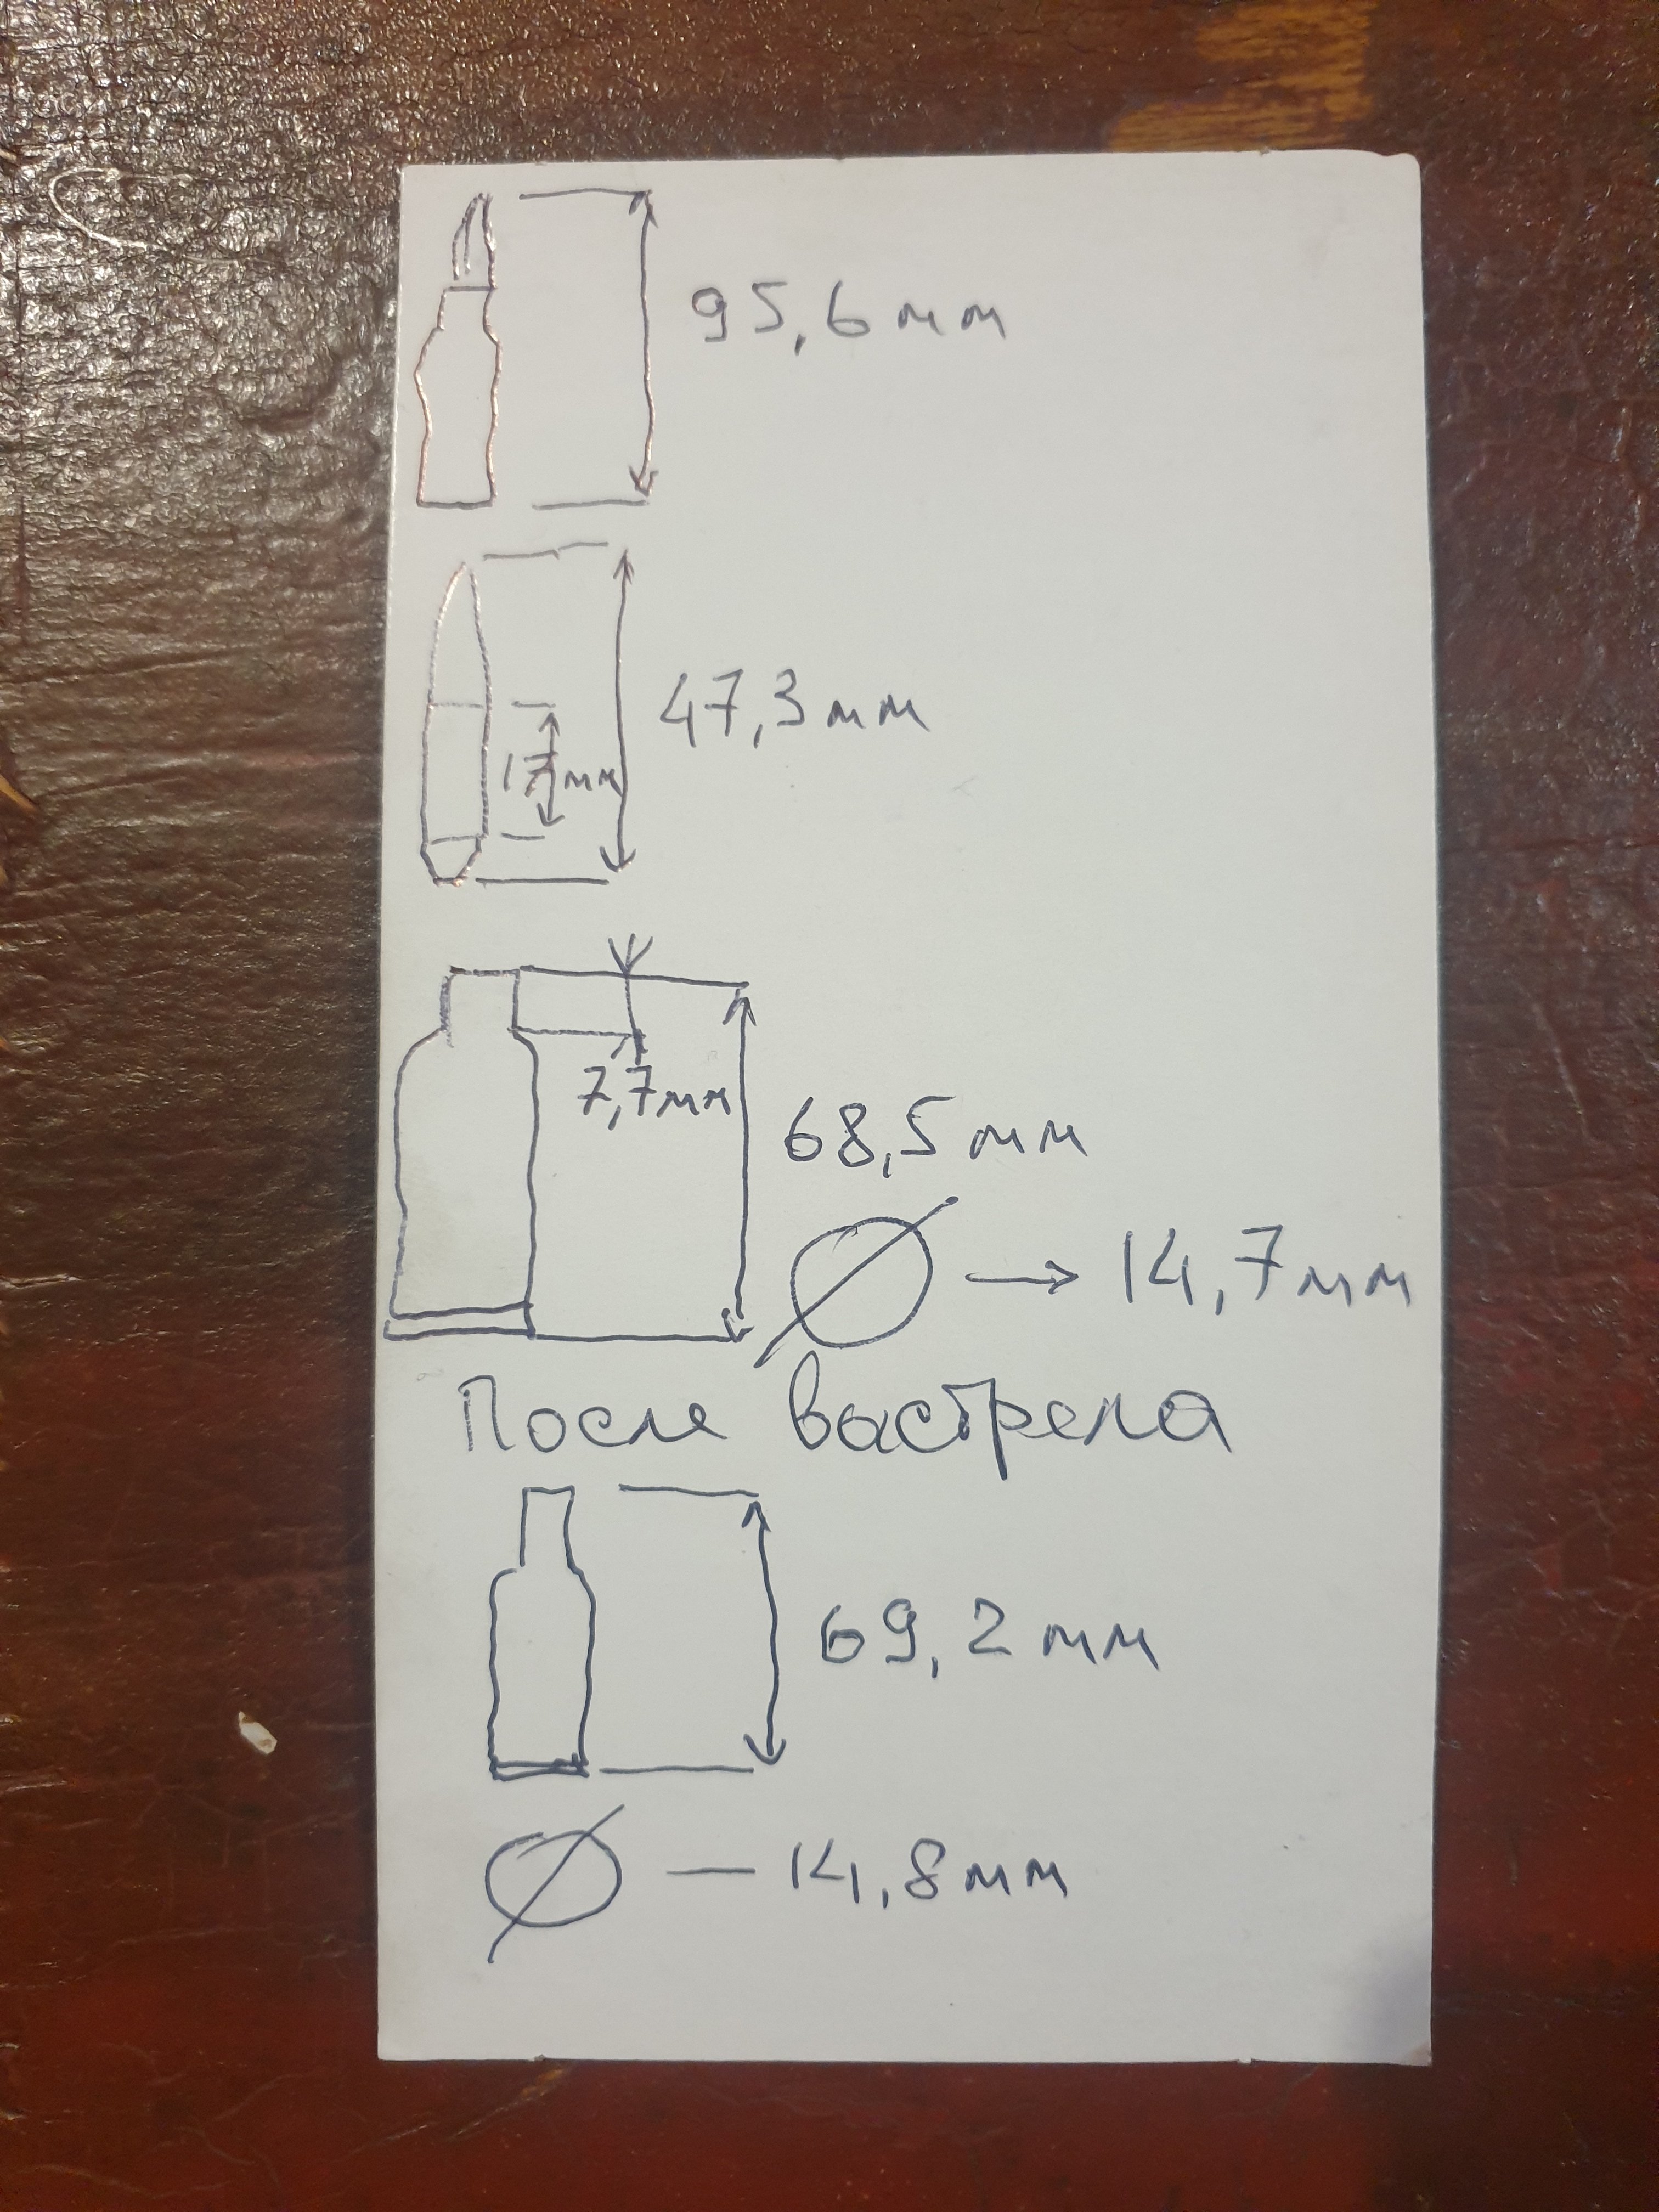 95,6мм
47,3мм
17мм
7,7мм
68,5мм
Ø → 14,7мм
После выстрела
69,2мм
Ø — 14,8мм